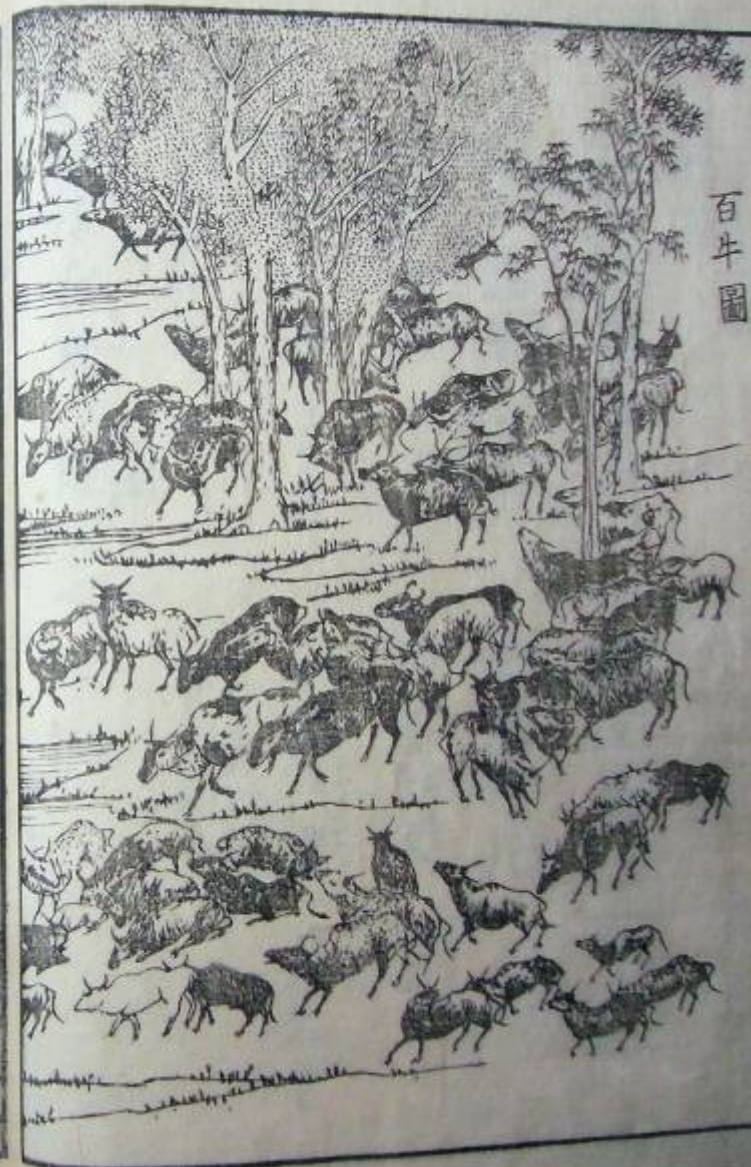 百牛圖